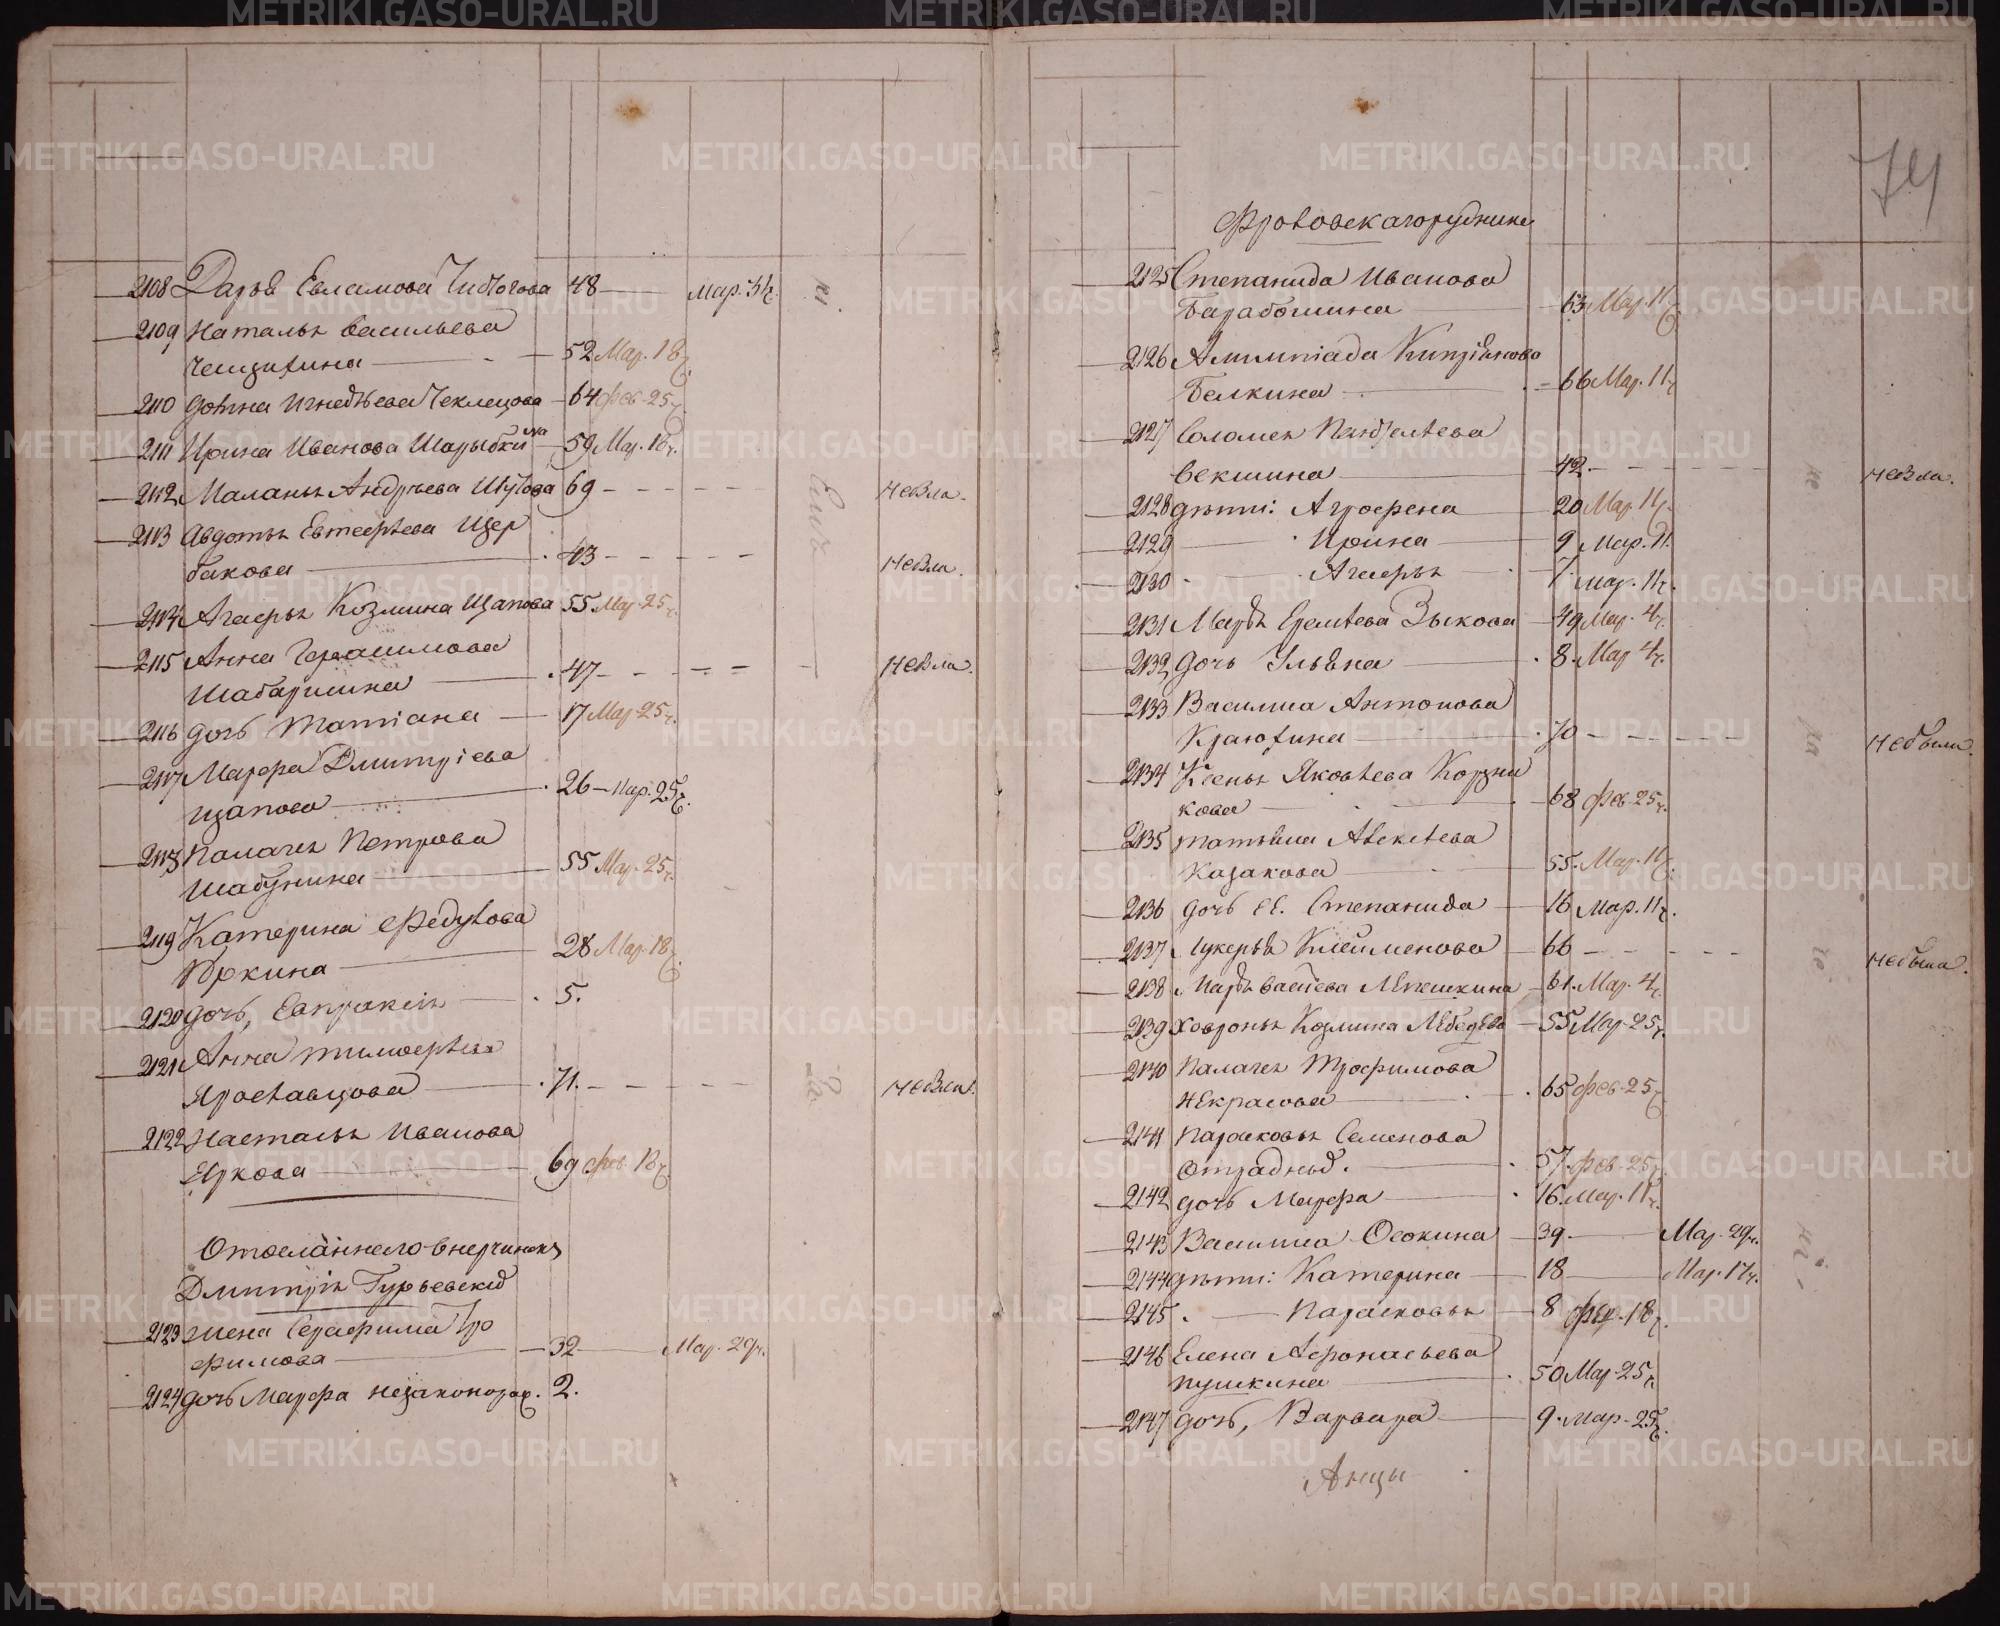 2108 Дарья Евламова 48 Мар.
2109 Наталья Васильева
52 Мар. 18 ч.
2110 64 Фев. 25 ч.
2111 Ирина Иванова Шарыбкина 59 Мар. 18 ч.
2112 Маланья Андреева 69 небыла.
2113 Авдотья Евтефеева Щер
бакова 43 небыла.
2114 Агафья Козмина Щапова 55 Мар. 25 ч.
2115 Анна Герасимова
Шабаршина 47 небыла.
2116 дочь Татиана 17 Мар. 25 ч.
2117 Марфа Дмитріева
Щапова 26 Мар. 25 ч.
2118 Палагея Петрова
Шабунина 55 Мар. 25 ч.
2119 Катерина Федулова
Юркина 28 Мар. 18 ч.
2120 дочь, Евпраксия 5.
2121 Анна Тимофеева
Ярославцова 71. небыла.
2122 Настасья Иванова
69 Фев. 18 ч.
Отосланнаго в нерчинскъ
Дмитрія Гурьевскаго
2123 жена Серафима Тро
фимова 32 Мар. 29 ч.
2124 дочь Марфа незаконорж. 2.
74
Фроловскаго рудника
2125 Степанида Иванова
Барабошина 63 Мар. 11 ч.
2126 Алимпіада Кипріянова
Белкина 66 Мар. 11 ч.
2127 Соломея Пантелеева
Векшина 42. небыла.
2128 дети: Аграфена 20 Мар. 11 ч.
2129 Ирина 9 Мар. 11.
2130 Агафья 7 Мар. 11 ч.
2131 Марья Еремеева Зыкова 49 Мар. 4 ч.
2132 дочь Ульяна 8 Мар. 4 ч.
2133 Василиса Антонова
70 небыла.
2134 Ксенья Яковлева Корзни
кова 68 Фев. 25 ч.
2135 Татьяна Авекеева
Казакова 55. Мар. 11 ч.
2136 дочь ея. Степанида 16 Мар. 11 ч.
2137 Лукерья Клейменова 66 небыла.
2138 Марья Лепешкина 61. Мар. 4 ч.
2139 Хавронья Козмина Лебедева 55 Мар. 25 ч.
2130 Палагея Трофимова
Некрасова 65 Фев. 25 ч.
2141 Парасковья Семенова
57. Фев. 25 ч.
2142 дочь Марфа 16. Мар. 11 ч.
2143 Василиса Осокина 39 Мар. 29 ч.
2144 дети: Катерина 18 Мар. 17 ч.
2145 Парасковья 8 Фев. 18 ч.
2146 Елена Афонасьева
Пушкина 50 Мар. 25 ч.
2147 дочь, Варвара 9. Мар. 25 ч.
METRIKI.GASO-URAL.RU